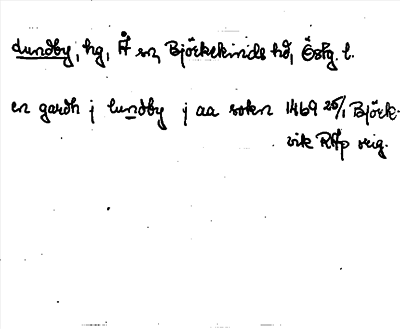 Lundby, hg, Å sn, Björkekinds hd, Östg. l.
en gardh j lundby j aa sokn 1469 25/1 Björk-
vik RAp orig.